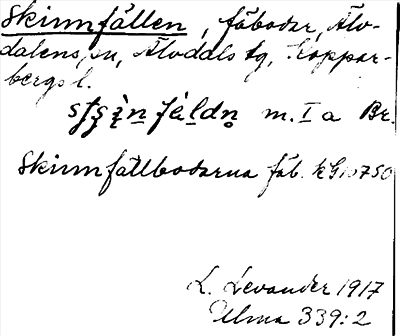 Skinnfällen, fäbodar, Älv-
dalens sn, Älvdals tg, Koppar-
bergs l.
m. I a Br.
Skinnfällbodarna fäb. KG 10750
L. Levander 1917
Ulma 339:2